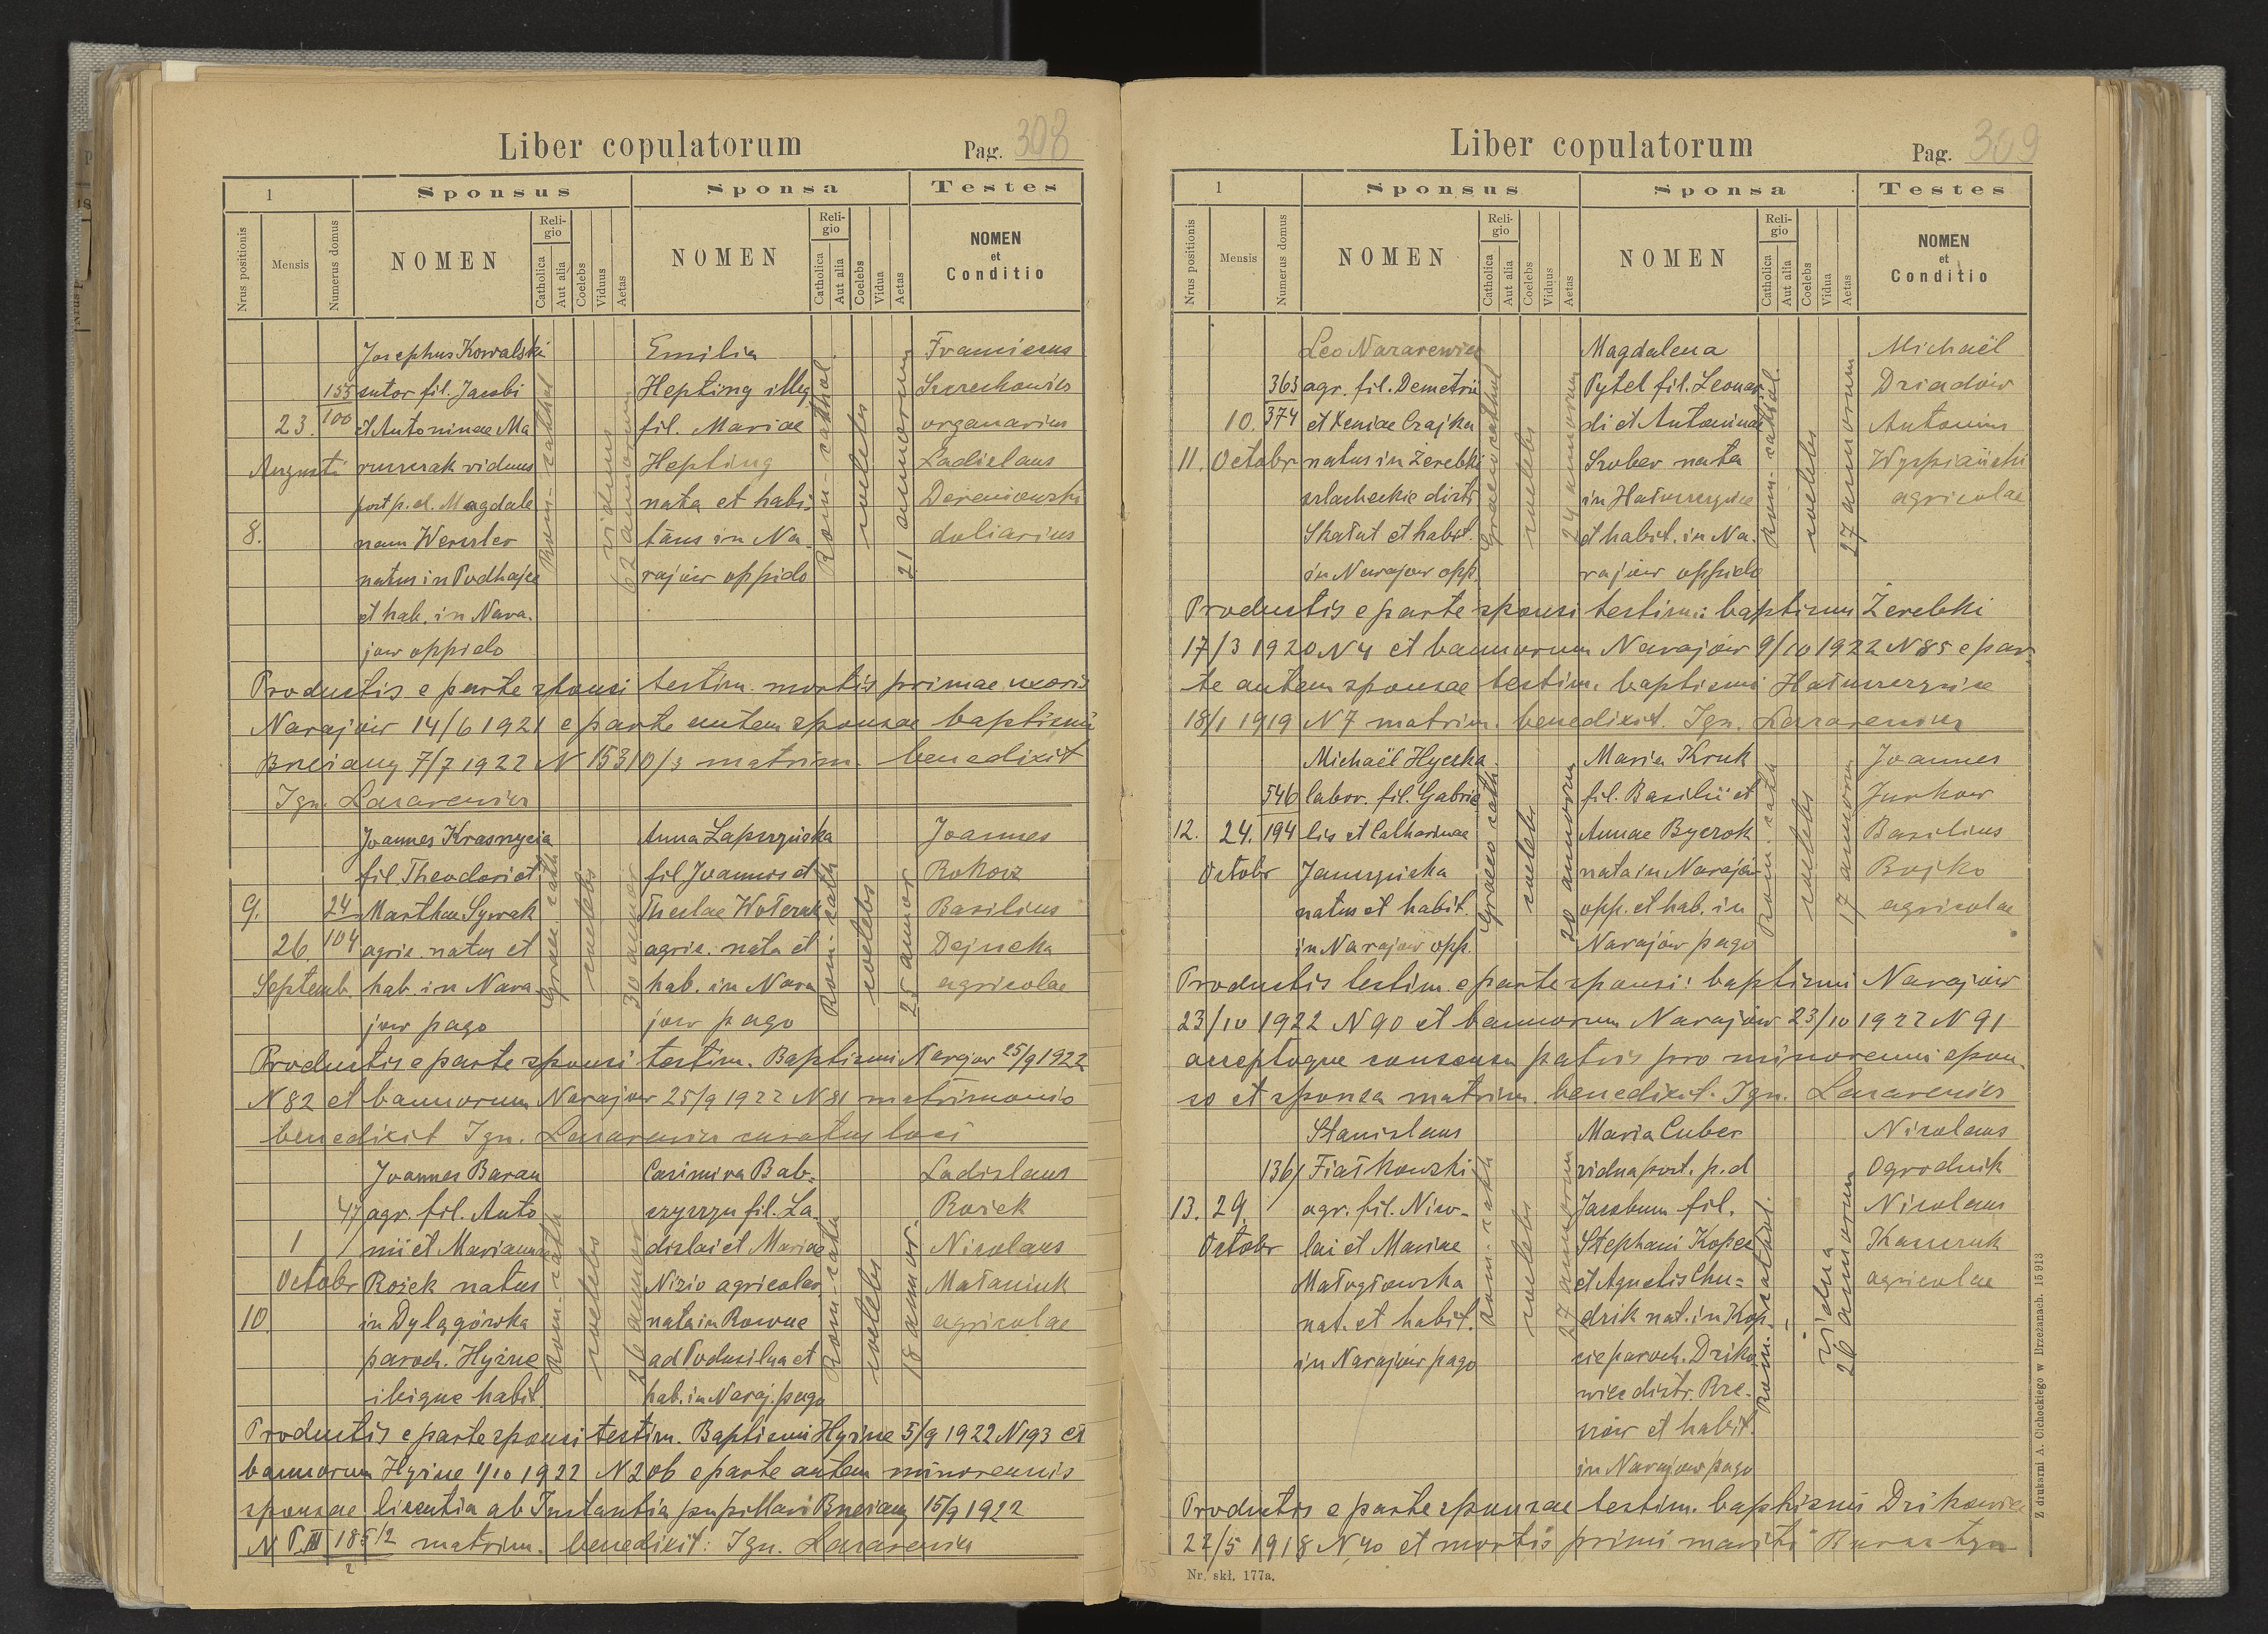 Liber copulatorum
Pag. 308
1
Sponsus
Sponsa
Testes
Nrus positionis
Mensis
Numerus domus
NOMEN
Religio
Catholica
Aut alia
Coelebs
Viduus
Aetas
NOMEN
Religio
Catholica
Aut alia
Coelebs
Vidua
Aetas
NOMEN
et
Conditio
Josephus Kowalski Emilia
155 sutor fil. Jacobi Hepting illeg.
23. 100 et Antoninae Ma fil. Mariae organarius
Augusti viduus Hepting Ladislaus
post p. d. Magdale nata et habi- Dereniowski
8. nam tans in Na- doliarius
natus in Podhajce rajów oppido
et hab. in Nara-
jow oppido
Rom-cathol
viduus
62 annorum
Rom-cathol.
coelebs
21 annorum
Productis e parte sponsi testim. mortis primae uxoris
Narajów 14/6 1921 e parte autem sponsae baptismi
7/7 1922 N 15310/3 matrim. benedixit
Ign. Lazarewicz
Joannes Krasnycia Anna Joannes
fil Theodori et fil Joannis et
9. 24 Marthae Theclae Basilius
26. 104 agric. natus et agric. nata et Dejneka
Septemb. hab. in Nara- hab. in Nara agricolae
jow pago jow pago
Graec. cath
coelebs
30 annor
Rom-cath
coelebs
25 annor
Productis e parte sponsi testim. Baptismi Narajow 25/9 1922
N 82 et bannorum Narajow 25/9 1922 N 81 matrimonio
benedixit Ign. Lazarewicz curatus loci
Joannes Baran Casimira Bab- Ladislaus
47 agr. fil. Anto fil. La- Rożek
1 nii et Mariannae dislai et Mariae Nicolaus
Octobr Rożek natus Nizio agricolae Mataniuk
10. in Dylągówka nata in Rowne agricolae
paroch. Hyżne ad et
ibique habit. hab. in Naraj. pago
Rom-cath
coelebs
26 annor
Rom-cath
coelebs
18 annor.
Productis e parte sponsi testim. Baptismi Hyżne 5/9 1922 N 193 et
bannorum Hyżne 1/10 1922 N 206 e parte autem minorennis
sponsae licentia ab Instantia pupillari 15/9 1922
N P. III 185/2 matrim. benedixit: Ign. Lazarewicz
2
Liber copulatorum
Pag. 309
1
Sponsus
Sponsa
Testes
Nrus positionis
Mensis
Numerus domus
NOMEN
Religio
Catholica
Aut alia
Coelebs
Viduus
Aetas
NOMEN
Religio
Catholica
Aut alia
Coelebs
Vidua
Aetas
NOMEN
et
Conditio
Leo Nazarewicz Magdalena Michaël
363 agr. fil. Demetrii Pytel fil. Leonar Dziadów
10. 374 et Xeniae Czajka di et Antoninae Antonius
11. Octobr natus in Żerebki Szober nata Wyspiański
szlacheckie distr in Hatuszczyńce agricolae
Skałat et habit. et habit. in Na-
in Narajow opp. rajów oppido
Graeco cathol
coelebs
24 annorum
Rom-cathol.
coelebs
27 annorum
Productis e parte sponsi testim.: baptismi Żerebki
17/3 1920 N 4 et bannorum Narajów 9/10 1922 N 85 e par-
te autem sponsae testim. baptismi Hatuszczyńce
18/1 1919 N 7 matrim. benedixit. Ign. Lazarewicz
Michaël Hyczka Maria Kruk Joannes
546 labor. fil. Gabrie fil. Basilii et Jurkow
12. 24. 194 lis et Catharinae Annae Byczok Basilius
Octobr nata in Narajów Bojko
natus et habit. opp. et hab. in agricolae
in Narajow opp. Narajów pago
Graeco cath
coelebs
20 annorum
Rom-cath
coelebs
17 annorum
Productis testim. e parte sponsi: baptismi Narajów
23/10 1922 N 90 et bannorum Narajów 23/10 1922 N 91
acceptoque consensu patris pro minorenni spon-
so et sponsa matrim. benedixit. Ign. Lazarewicz
Stanislaus Maria Cuber Nicolaus
136 Fiałkowski vidua post. p. d Ogrodnik
13. 29. agr. fil. Nico- Jacobum fil. Nicolaus
Octobr lai et Mariae Stephani Kopec
Małogłowska et Agnetis Chu- agricolae
nat. et habit. drik nat. in Kop-
in Narajów pago cie paroch. Dziko-
wiec distr.
et habit.
in Narajow pago
Rom-cath
coelebs
27 annorum
Rom. cathol.
vidua
26 annorum
Productis e parte sponsae testim. baptismi Dzikowiec
22/5 1918 N 40 et mortis primi mariti
Nr. skł. 177a.
Z drukarni A. Cichockiego w Brzeżanach. 15913